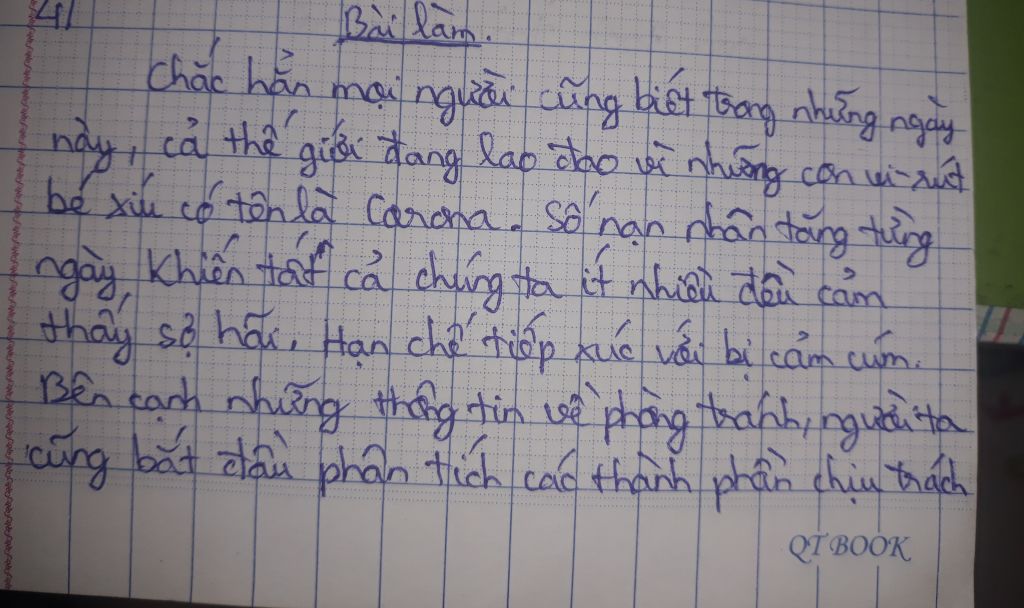 41
Bài làm.
Chắc hẳn mọi người cũng biết trong những ngày
này, cả thế giới đang lao đao vì những con vi-rút
bé xíu có tên là Corona. Số nạn nhân tăng từng
ngày, khiến tất cả chúng ta ít nhiều đều cảm
thấy sợ hãi. Hạn chế tiếp xúc với bị cảm cúm.
Bên cạnh những thông tin về phòng tránh, người ta
cũng bắt đầu phân tích các thành phần chịu trách
QT BOOK